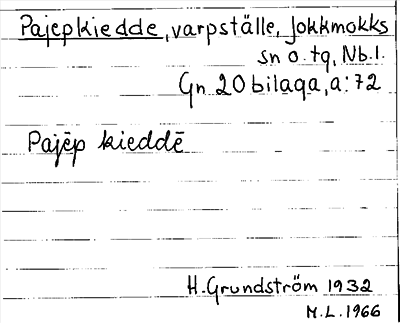 Pajēpkiedde, varpställe, Jokkmokks
sn o. tg, Nb.l.
Gn 20 bilaga, a:72
Pajēp kieddē
H. Grundström 1932
M.L. 1966